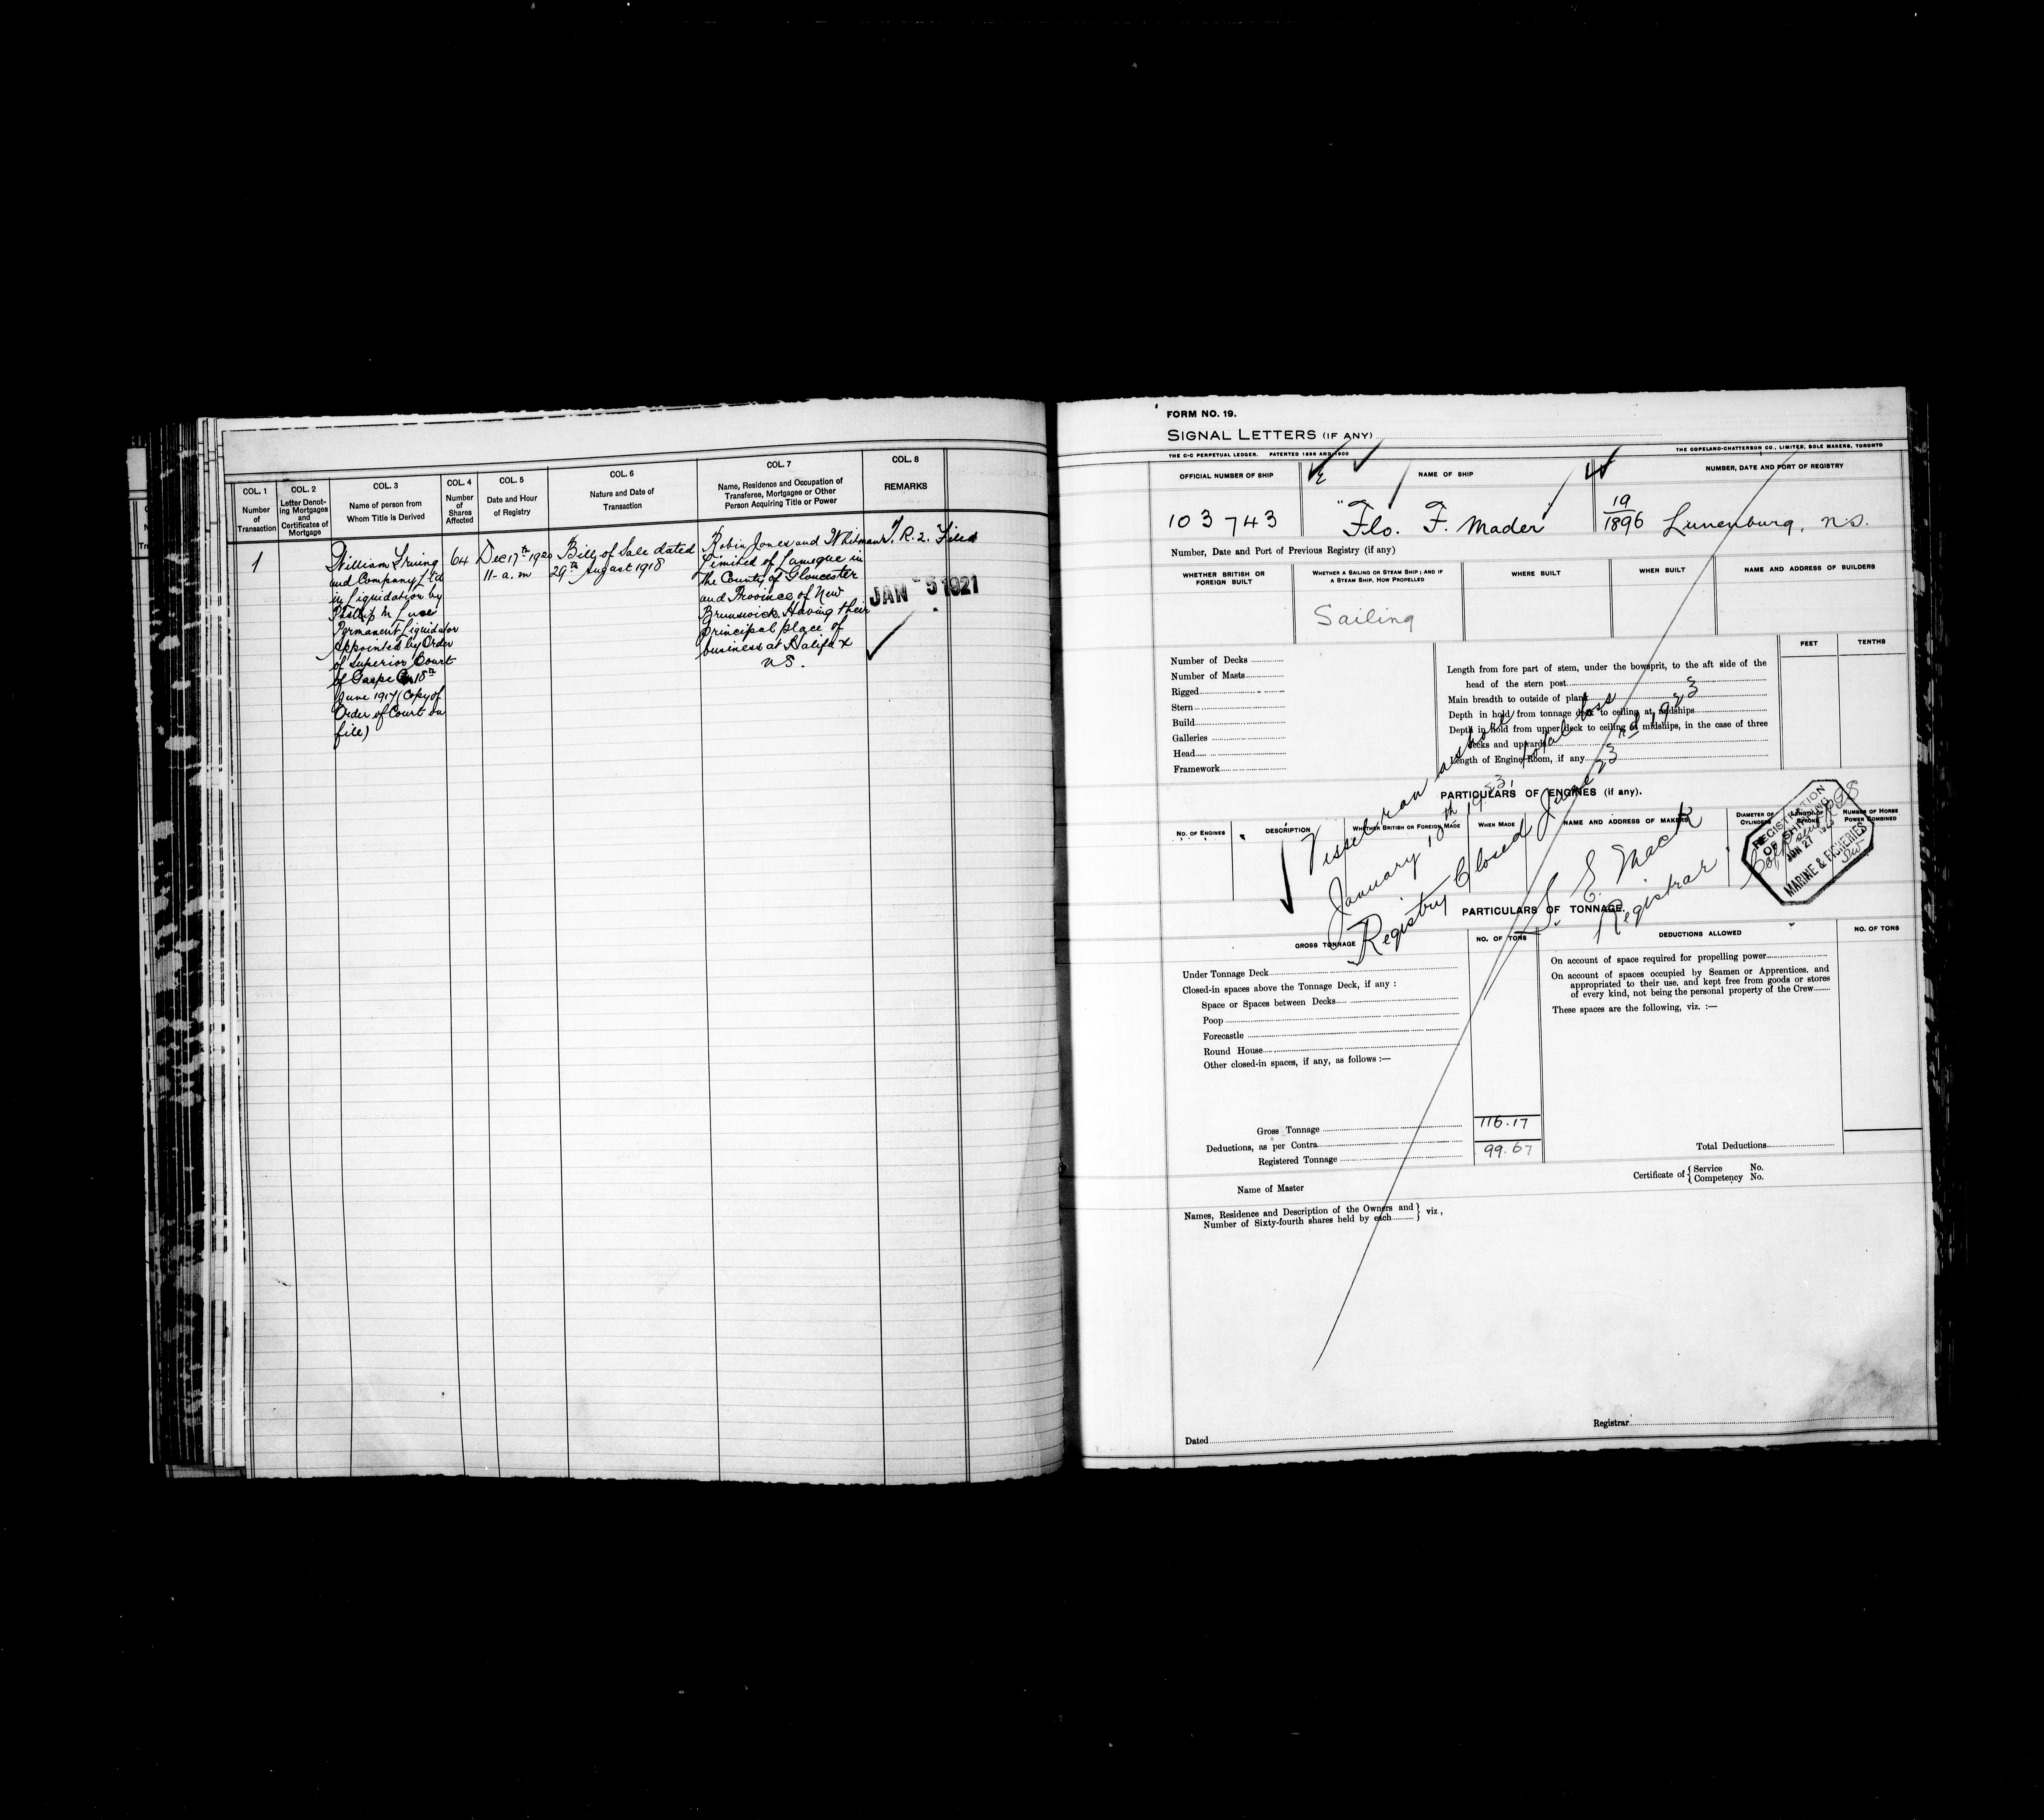 COL. 1
Number
of
Transaction
COL. 2
Letter Denot-
ing Mortgages
and
Certificates of
Mortgage
COL. 3
Name of person from
Whom Title is Derived
COL. 4
Number
of
Shares
Affected
COL. 5
Date and Hour
of Registry
COL. 6
Nature and Date of
Transaction
COL. 7
Name, Residence and Occupation of
Transferee, Mortgagee or Other
Person Acquiring Title or Power
COL. 8
REMARKS
1
William Irving
and Company Ltd
in liquidation by
Philip M Luce
Permanent Liquidator
Appointed by Order
of Superior Court
of Gaspe On 18th
June 1917 (Copy of
Order of Court on
file)
64
Dec 17th 1920
11- a. m
Bill of Sale dated
29th August 1918
Robin Jones and Whitman
Limited of Lameque in
the County of Gloucester
and Province of New
Brunswick. Having their
principal place of
business at Halifax
N.S.
T. R. 2. Filed
JAN -5 1921
FORM NO. 19.
SIGNAL LETTERS (IF ANY)
THE C-C PERPETUAL LEDGER. PATENTED 1896 AND 1900
THE COPELAND-CHATTERSON CO., LIMITED, SOLE MAKERS, TORONTO
OFFICIAL NUMBER OF SHIP
NAME OF SHIP
NUMBER, DATE AND PORT OF REGISTRY
103743
"Flo. F. Mader"
19/1896 Lunenburg, N.S.
Number, Date and Port of Previous Registry (if any)
WHETHER BRITISH OR
FOREIGN BUILT
WHETHER A SAILING OR STEAM SHIP; AND IF
A STEAM SHIP, HOW PROPELLED
WHERE BUILT
WHEN BUILT
NAME AND ADDRESS OF BUILDERS
Sailing
FEET
TENTHS
Number of Decks
Number of Masts
Rigged
Stern
Build
Galleries
Head
Framework
Length from fore part of stem, under the bowsprit, to the aft side of the
head of the stern post
Main breadth to outside of plank
Depth in hold from tonnage deck to ceiling at midships
Depth in hold from upper deck to ceiling at midships, in the case of three
decks and upwards
Length of Engine Room, if any
PARTICULARS OF ENGINES (if any).
NO. OF ENGINES
DESCRIPTION
WHETHER BRITISH OR FOREIGN MADE
WHEN MADE
NAME AND ADDRESS OF MAKERS
DIAMETER OF
CYLINDERS
LENGTH OF
STROKE
NUMBER OF HORSE
POWER COMBINED
Vessel ran ashore total loss
January 18th 1923,
Registry Closed June 23rd 1923
S. E. Mack
Registrar
REGISTRATION
OF SHIPPING
JUN 27 1923
MARINE & FISHERIES
PARTICULARS OF TONNAGE.
GROSS TONNAGE
NO. OF TONS
DEDUCTIONS ALLOWED
NO. OF TONS
Under Tonnage Deck
Closed-in spaces above the Tonnage Deck, if any :
Space or Spaces between Decks
Poop
Forecastle
Round House
Other closed-in spaces, if any, as follows :—
On account of space required for propelling power
On account of spaces occupied by Seamen or Apprentices, and
appropriated to their use, and kept free from goods or stores
of every kind, not being the personal property of the Crew
These spaces are the following, viz. :—
Gross Tonnage 116.17
Deductions, as per Contra
Registered Tonnage 99.67
Total Deductions
Name of Master
Certificate of { Service No.
Competency No.
Names, Residence and Description of the Owners and
Number of Sixty-fourth shares held by each } viz,
Dated
Registrar